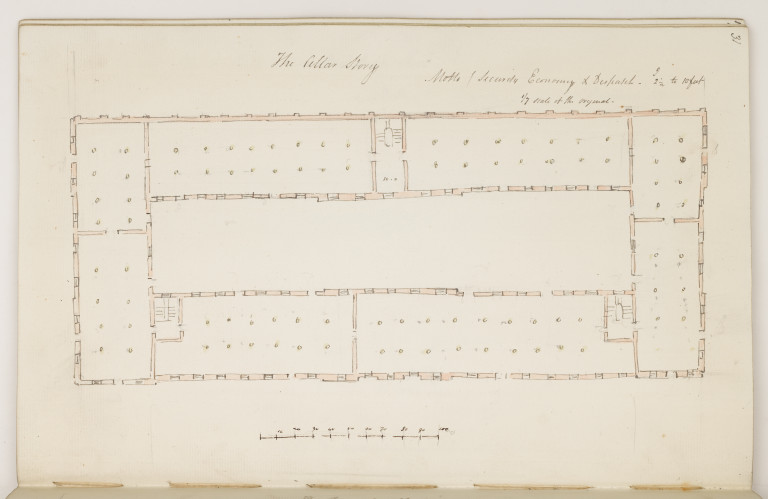 31
The Cellar Story
Motto / Security Economy & Despatch - to 10 feet
1/7 scale of the original -
10 20 30 40 50 60 70 80 90 100